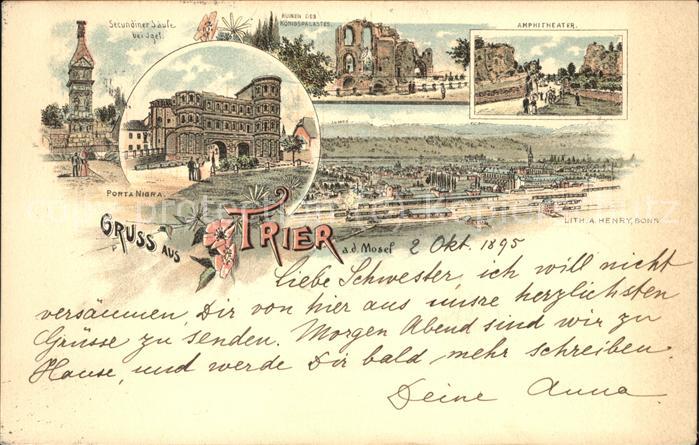 Secundiner Säule
bei Igel.
RUINEN DES
KÖNIGSPALASTES.
AMPHITHEATER.
PORTA NIGRA.
LITH. A. HENRY, BONN
GRUSS AUS TRIER a.d. Mosel 2 Okt. 1895
Liebe Schwester, ich will nicht
versäumen, Dir von hier aus unsre herzlichsten
Grüsse zu senden. Morgen Abend sind wir zu
Hause, und werde Dir bald mehr schreiben.
Deine Anna.